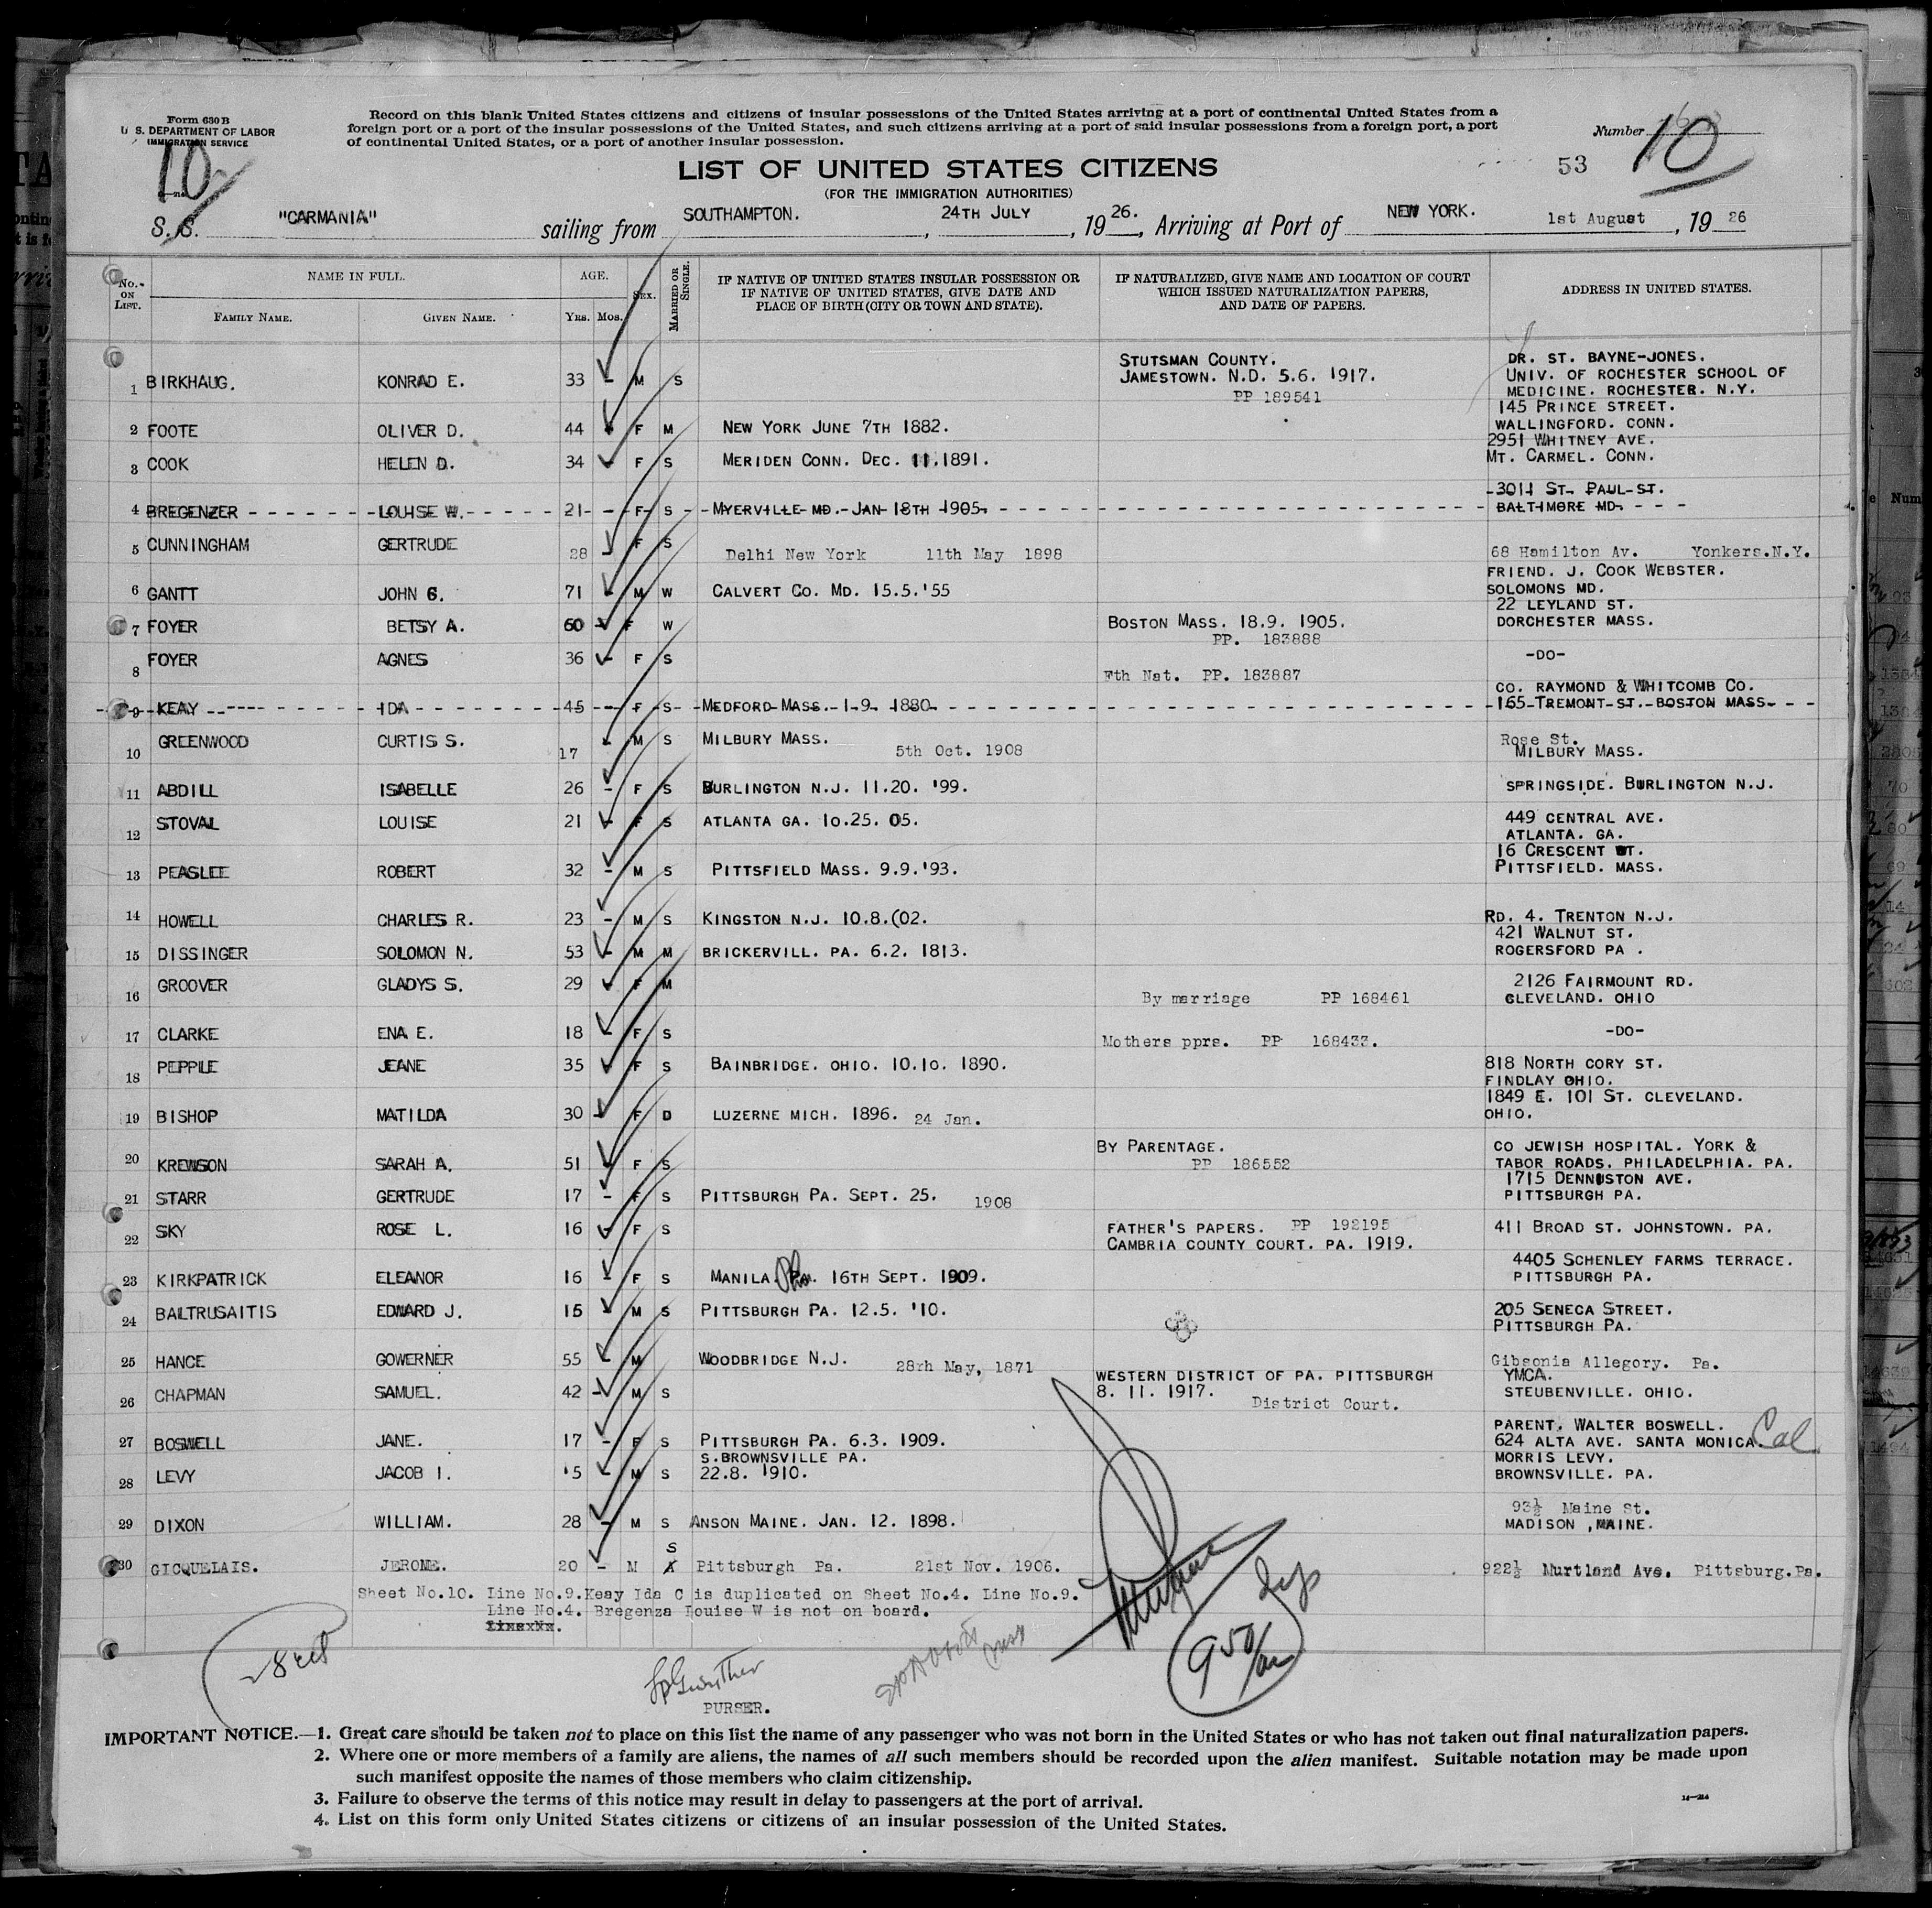 Form 630 B
U. S. DEPARTMENT OF LABOR
IMMIGRATION SERVICE
10
Record on this blank United States citizens and citizens of insular possessions of the United States arriving at a port of continental United States from a
foreign port or a port of the insular possessions of the United States, and such citizens arriving at a port of said insular possessions from a foreign port, a port
of continental United States, or a port of another insular possession.
Number 10
53
LIST OF UNITED STATES CITIZENS
(FOR THE IMMIGRATION AUTHORITIES)
S.S. "CARMANIA" sailing from SOUTHAMPTON. , 24TH JULY , 1926. , Arriving at Port of NEW YORK. 1st August , 1926
No. ON LIST. NAME IN FULL. AGE. SEX. MARRIED OR SINGLE. IF NATIVE OF UNITED STATES INSULAR POSSESSION OR IF NATIVE OF UNITED STATES, GIVE DATE AND PLACE OF BIRTH (CITY OR TOWN AND STATE). IF NATURALIZED, GIVE NAME AND LOCATION OF COURT WHICH ISSUED NATURALIZATION PAPERS, AND DATE OF PAPERS. ADDRESS IN UNITED STATES.
FAMILY NAME. GIVEN NAME. YRS. MOS.
1 BIRKHAUG. KONRAD E. 33 - M S STUTSMAN COUNTY. JAMESTOWN. N.D. 5.6. 1917. PP 189541 DR. ST. BAYNE-JONES. UNIV. OF ROCHESTER SCHOOL OF MEDICINE. ROCHESTER. N.Y.
2 FOOTE OLIVER D. 44 - F M NEW YORK JUNE 7TH 1882. 145 PRINCE STREET. WALLINGFORD. CONN.
3 COOK HELEN D. 34 - F S MERIDEN CONN. DEC. 11.1891. 2951 WHITNEY AVE. MT. CARMEL. CONN.
4 BREGENZER LOUISE W. 21 - F S MYERVILLE MD. JAN 18TH 1905. 3011 ST. PAUL ST. BALTIMORE MD.
5 CUNNINGHAM GERTRUDE 28 - F S Delhi New York 11th May 1898 68 Hamilton Av. Yonkers.N.Y.
6 GANTT JOHN G. 71 - M W CALVERT CO. MD. 15.5.'55 FRIEND. J. COOK WEBSTER. SOLOMONS MD.
7 FOYER BETSY A. 60 - F W BOSTON MASS. 18.9. 1905. PP. 183888 22 LEYLAND ST. DORCHESTER MASS.
8 FOYER AGNES 36 - F S Fth Nat. PP. 183887 -DO-
9 KEAY IDA 45 - F S MEDFORD MASS. 1-9- 1880. CO. RAYMOND & WHITCOMB CO. 165 TREMONT ST. BOSTON MASS.
10 GREENWOOD CURTIS S. 17 - M S MILBURY MASS. 5th Oct. 1908 Rose St. MILBURY MASS.
11 ABDILL ISABELLE 26 - F S BURLINGTON N.J. 11.20. '99. SPRINGSIDE. BURLINGTON N.J.
12 STOVAL LOUISE 21 - F S ATLANTA GA. 10.25. 05. 449 CENTRAL AVE. ATLANTA. GA.
13 PEASLEE ROBERT 32 - M S PITTSFIELD MASS. 9.9.'93. 16 CRESCENT ST. PITTSFIELD. MASS.
14 HOWELL CHARLES R. 23 - M S KINGSTON N.J. 10.8.(02. RD. 4. TRENTON N.J.
15 DISSINGER SOLOMON N. 53 - M M BRICKERVILL. PA. 6.2. 1813. 421 WALNUT ST. ROGERSFORD PA .
16 GROOVER GLADYS S. 29 - F M By marriage PP 168461 2126 FAIRMOUNT RD. CLEVELAND. OHIO
17 CLARKE ENA E. 18 - F S Mothers pprs. PP 168433. -DO-
18 PEPPLE JEANE 35 - F S BAINBRIDGE. OHIO. 10.10. 1890. 818 NORTH CORY ST. FINDLAY OHIO.
19 BISHOP MATILDA 30 - F D LUZERNE MICH. 1896. 24 Jan. 1849 E. 101 ST. CLEVELAND. OHIO.
20 KREWSON SARAH A. 51 - F S BY PARENTAGE. PP 186552 CO JEWISH HOSPITAL. YORK & TABOR ROADS. PHILADELPHIA. PA.
21 STARR GERTRUDE 17 - F S PITTSBURGH PA. SEPT. 25. 1908 1715 DENNISTON AVE. PITTSBURGH PA.
22 SKY ROSE L. 16 - F S FATHER'S PAPERS. PP 192195 CAMBRIA COUNTY COURT. PA. 1919. 411 BROAD ST. JOHNSTOWN. PA.
23 KIRKPATRICK ELEANOR 16 - F S MANILA. PA. 16TH SEPT. 1909. 4405 SCHENLEY FARMS TERRACE. PITTSBURGH PA.
24 BALTRUSAITIS EDWARD J. 15 - M S PITTSBURGH PA. 12.5. '10. 205 SENECA STREET. PITTSBURGH PA.
25 HANCE GOWERNER 55 - M WOODBRIDGE N.J. 28rh May, 1871 Gibsonia Allegory. Pa.
26 CHAPMAN SAMUEL. 42 - M S WESTERN DISTRICT OF PA. PITTSBURGH 8. 11. 1917. District Court. YMCA. STEUBENVILLE. OHIO.
27 BOSWELL JANE. 17 - F S PITTSBURGH PA. 6.3. 1909. PARENT. WALTER BOSWELL. 624 ALTA AVE. SANTA MONICA. Cal
28 LEVY JACOB I. '5 - M S S.BROWNSVILLE PA. 22.8. 1910. MORRIS LEVY. BROWNSVILLE. PA.
29 DIXON WILLIAM. 28 - M S ANSON MAINE. JAN. 12. 1898. 93½ Maine St. MADISON ,MAINE.
30 GICQUELAIS. JEROME. 20 - M S Pittsburgh Pa. 21st Nov. 1906. 922½ Murtland Ave. Pittsburg.Pa.
Sheet No.10. Line No.9.Keay Ida C is duplicated on Sheet No.4. Line No.9.
Line No.4. Bregenza Louise W is not on board.
PURSER.
IMPORTANT NOTICE.—1. Great care should be taken not to place on this list the name of any passenger who was not born in the United States or who has not taken out final naturalization papers.
2. Where one or more members of a family are aliens, the names of all such members should be recorded upon the alien manifest. Suitable notation may be made upon
such manifest opposite the names of those members who claim citizenship.
3. Failure to observe the terms of this notice may result in delay to passengers at the port of arrival.
4. List on this form only United States citizens or citizens of an insular possession of the United States.
14—214